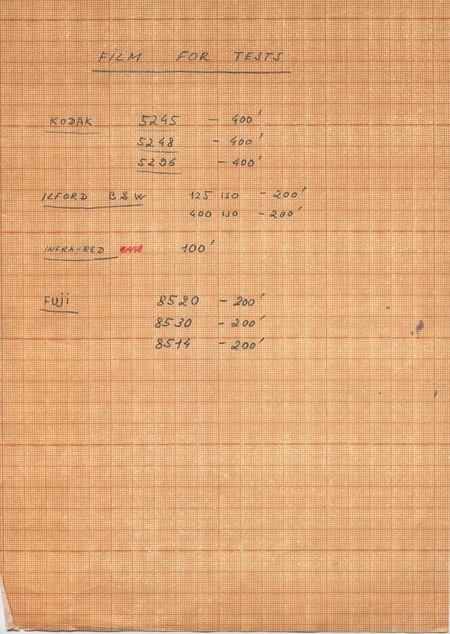 FILM FOR TESTS
KODAK 5245 - 400'
5248 - 400'
5296 - 400'
ILFORD B&W 125 ISO - 200'
400 ISO - 200'
INFRA-RED 100'
FUJI 8520 - 200'
8530 - 200'
8514 - 200'